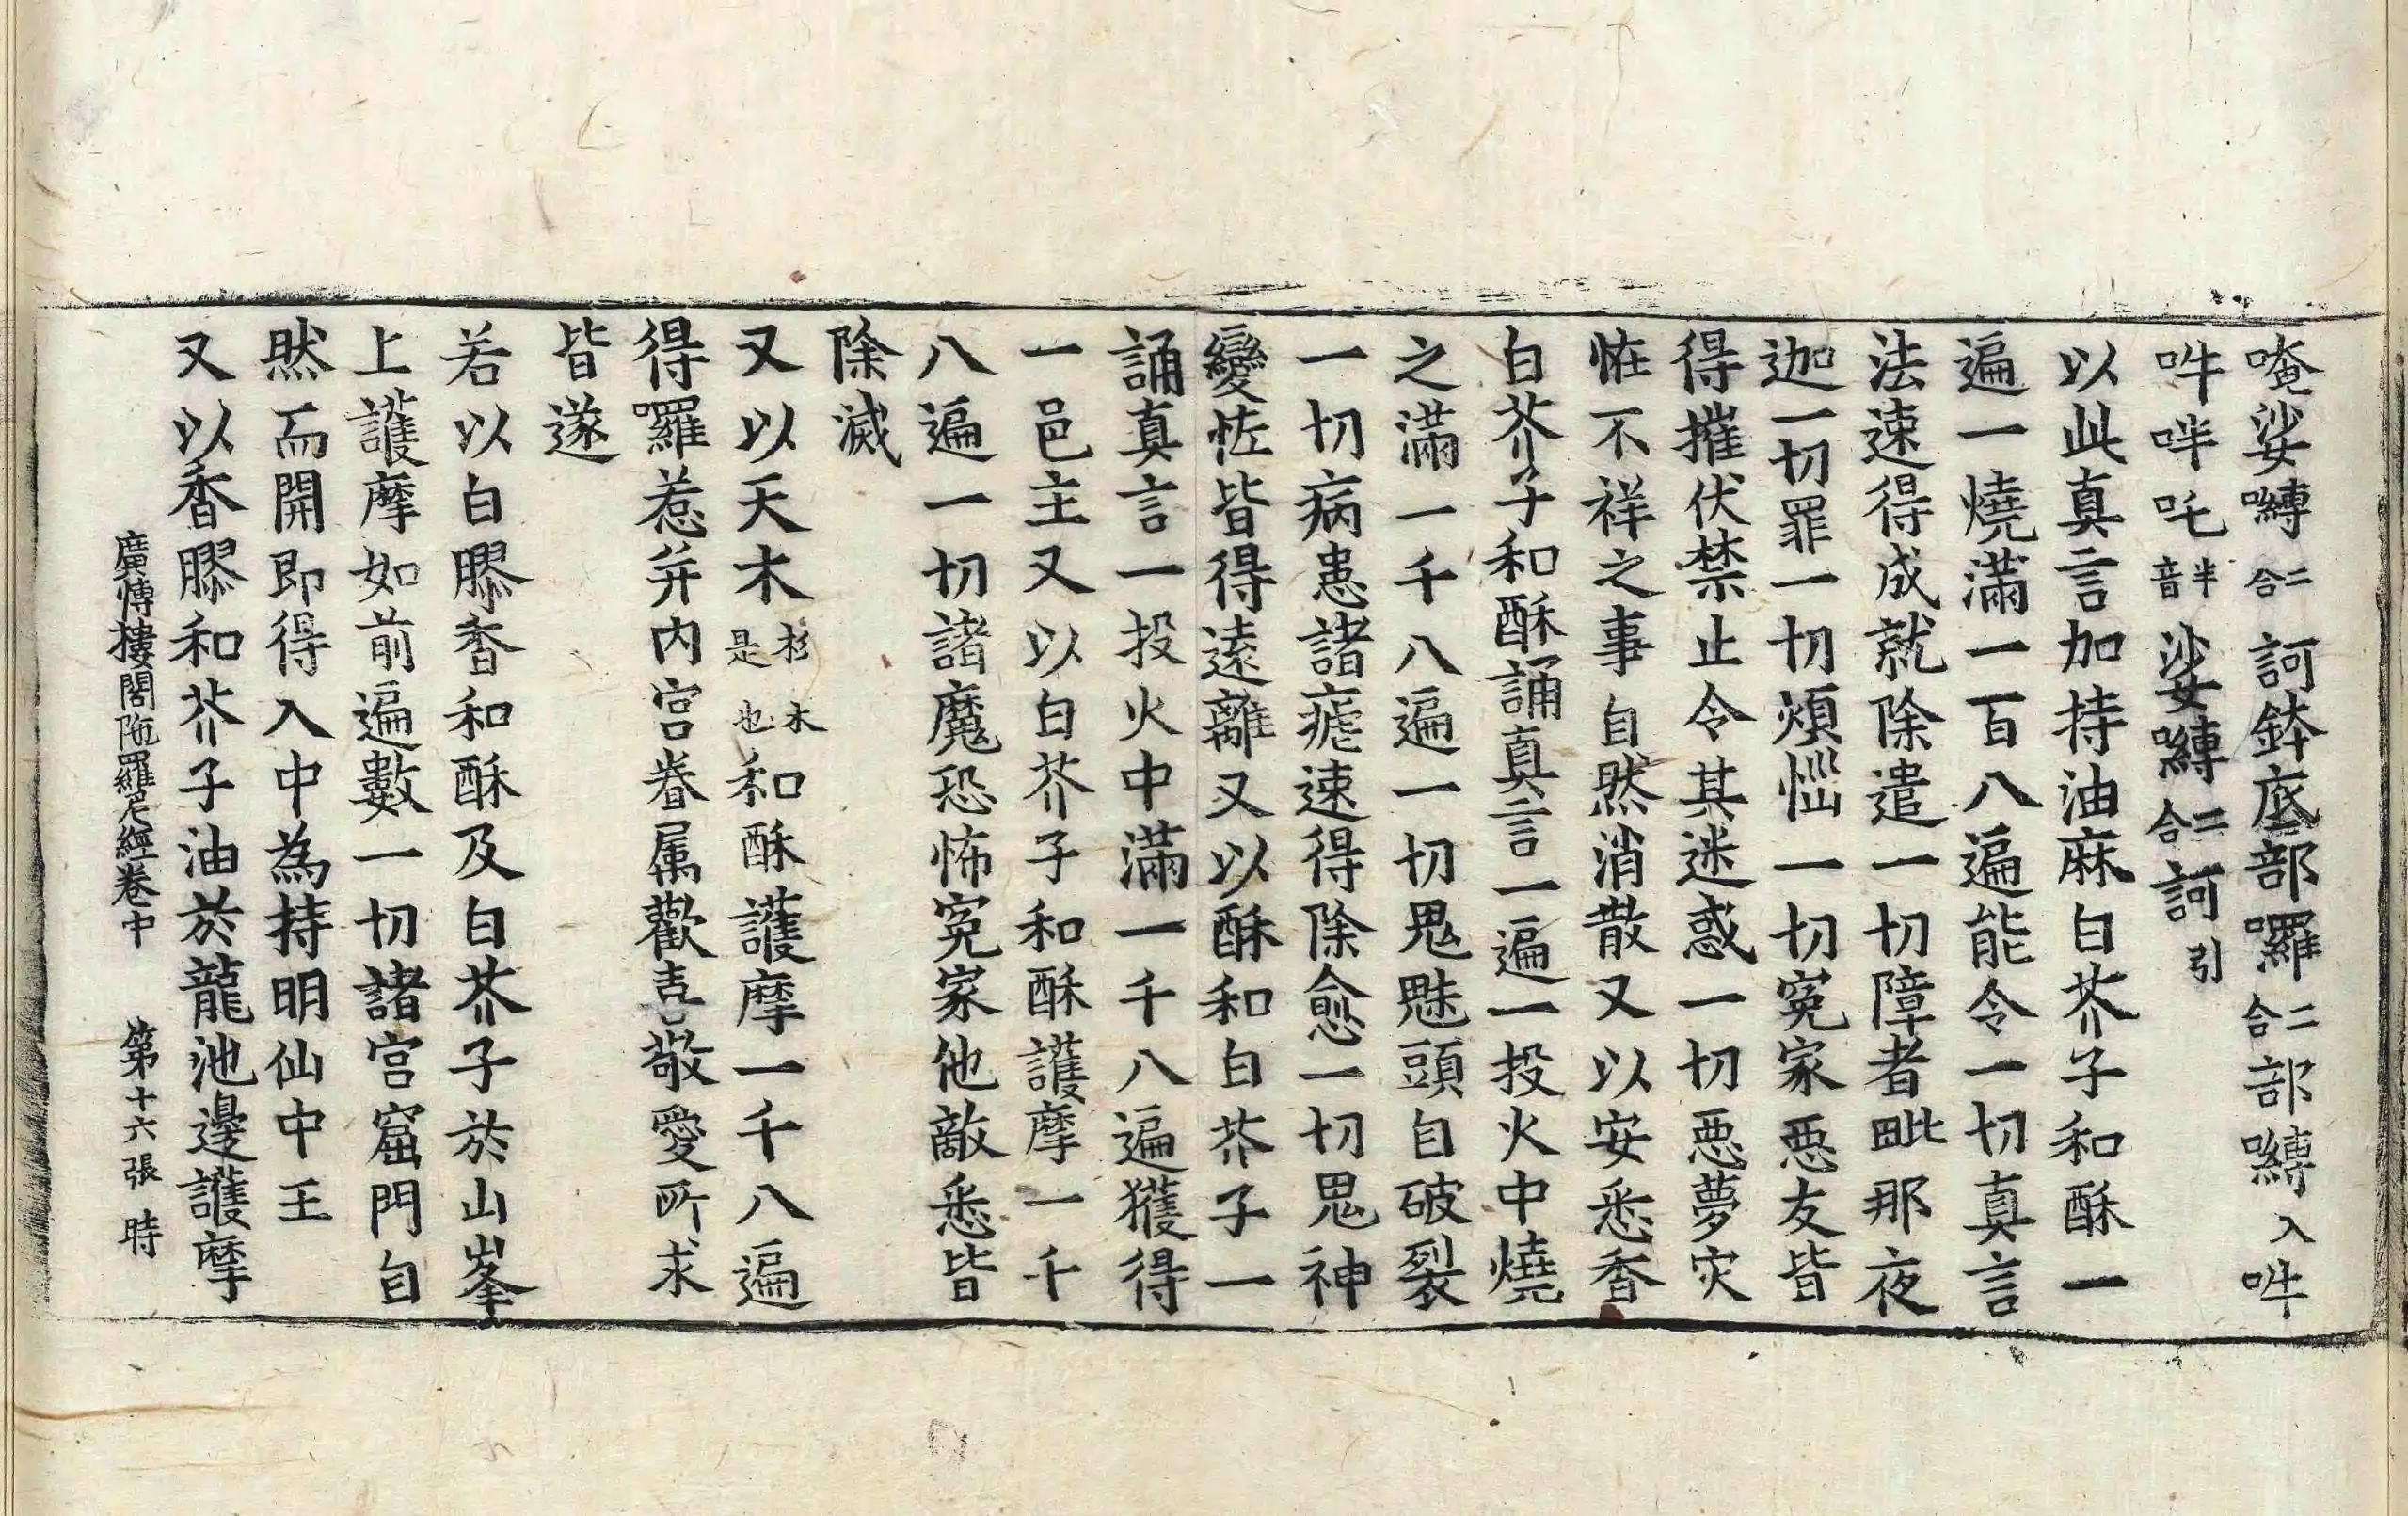 唵娑嚩二合訶鉢底部囉二合部嚩入吽
吽吽吒半音娑嚩二合訶引
以此真言加持油麻白芥子和酥一
遍一燒滿一百八遍能令一切真言
法速得成就除遣一切障者毗那夜
迦一切罪一切煩惱一切冤家惡友皆
得摧伏禁止令其迷惑一切惡夢灾
恠不祥之事自然消散又以安悉香
白芥子和酥誦真言一遍一投火中燒
之滿一千八遍一切鬼魅頭自破裂
一切病患諸瘧速得除愈一切鬼神
變恠皆得遠離又以酥和白芥子一
誦真言一投火中滿一千八遍獲得
一邑主又以白芥子和酥護摩一千
八遍一切諸魔恐怖冤家他敵悉皆
除滅
又以天木杉木是也和酥護摩一千八遍
得囉惹并內宮眷属歡喜敬愛所求
皆遂
若以白膠香和酥及白芥子於山峯
上護摩如前遍數一切諸宮窟門自
然而開即得入中為持明仙中王
又以香膠和芥子油於龍池邊護摩
廣愽樓閣陁羅尼經卷中 第十六張 時